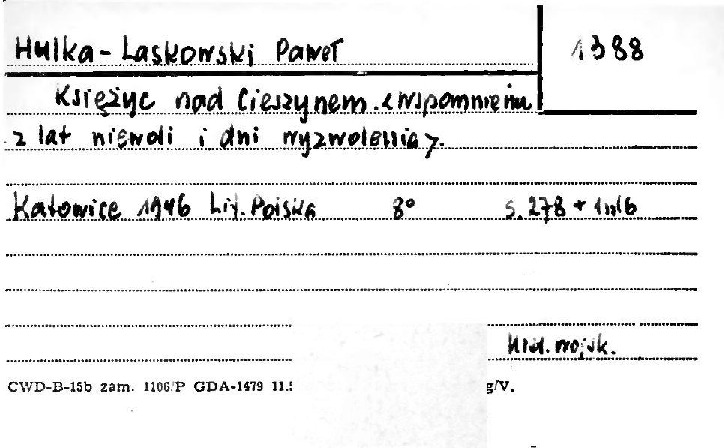 Hulka-Laskowski Paweł
1388
Księżyc nad Cieszynem. <Wspomnienia
z lat niewoli i dni wyzwolenia>.
Katowice 1946 Lit. Polska 8° s. 278 + 1nlb
Hist. wojsk.
CWD-B-15b zam. 1106/P GDA-1479 11. g/V.